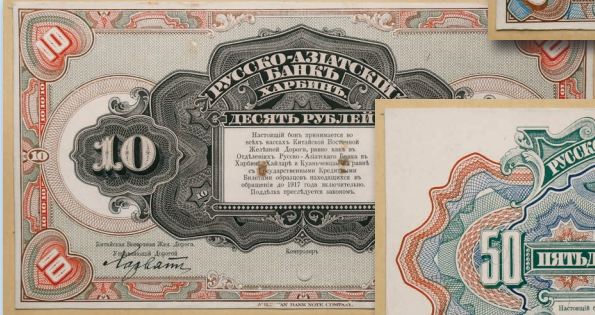 10
РУССКО-АЗІАТСКІЙ
БАНКЪ
ХАРБИНЪ.
ДЕСЯТЬ РУБЛЕЙ
Настоящій бонъ принимается во
всѣхъ кассахъ Китайской Восточной
Желѣзной Дороги, равно какъ въ
Отдѣленіяхъ Русско-Азіатскаго Банка въ
Харбинѣ, Хайларѣ и Куаньченцзы наравнѣ
съ Государственными Кредитными
Билетами образцовъ находящихся въ
обращеніи до 1917 года включительно.
Поддѣлка преслѣдуется закономъ.
10
10
Китайская Восточная Жел. Дорога.
Управляющій Дорогой
Контролеръ
10
AN BANK NOTE COMPANY.
РУССКО
50
ПЯТЬД
Настоящій б